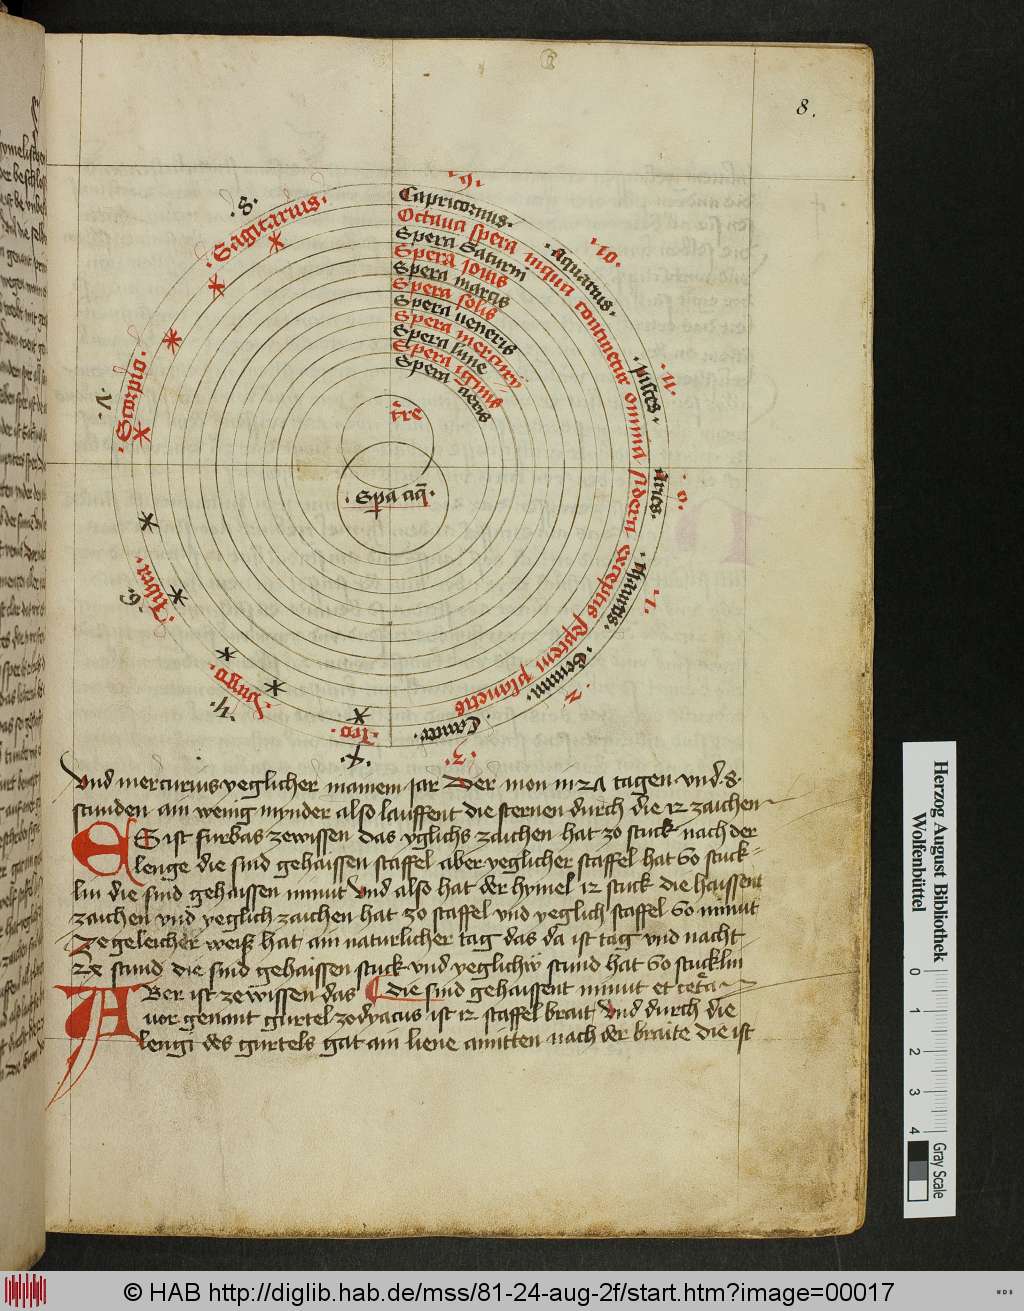 8.
.9.
Capricornus.
Octava spera in qua continetur omnia sidera exceptis septem planetis
Spera Saturni
Spera Jovis
Spera martis
Spera solis
Spera veneris
Spera mercurij
Spera lune
Spera ignis
Spera aeris
t̄re
. Spa aq̄ .
.10.
.aquarius.
.11.
.pisces.
.0.
Aries.
.1.
.Thaurus.
.2.
.Gemini.
.3.
.Cancer.
.4.
.Leo.
.virgo.
.6.
.Libra.
.Scorpio.
.8.
.Sagitarius.
Vnd mercurius yeglicher in ainem jar Der mon in 27 tagen vnd .8.
stunden ain wenig mynder also lauffent die sternen durch die 12 zaichen
ES ist furbas ze wissen das yglichs zaichen hat 30 stuck nach der
lenge die sind gehaissen staffel aber yeglicher staffel hat 60 stuck-
lin die sind gehaissen minut vnd also hat der hymel 12 stuck die haissent
zaichen vnd yeglich zaichen hat 30 staffel vnd yeglich staffel 60 minut
Ze geleicher weiß hat ain naturlicher tag das da ist tag vnd nacht
24 stund die sind gehaissen stuck vnd yeglichü stund hat 60 stucklin
ABer ist ze wissen das die sind gehaissent minut et cet̄a
vor genant gurtel zodyacus ist 12 staffel brait vnd durch die
lengi des gurtels gat ain liene amitten nach der braite die ist
Herzog August Bibliothek
Wolfenbüttel
0 1 2 3 4
Gray Scale
© HAB http://diglib.hab.de/mss/81-24-aug-2f/start.htm?image=00017